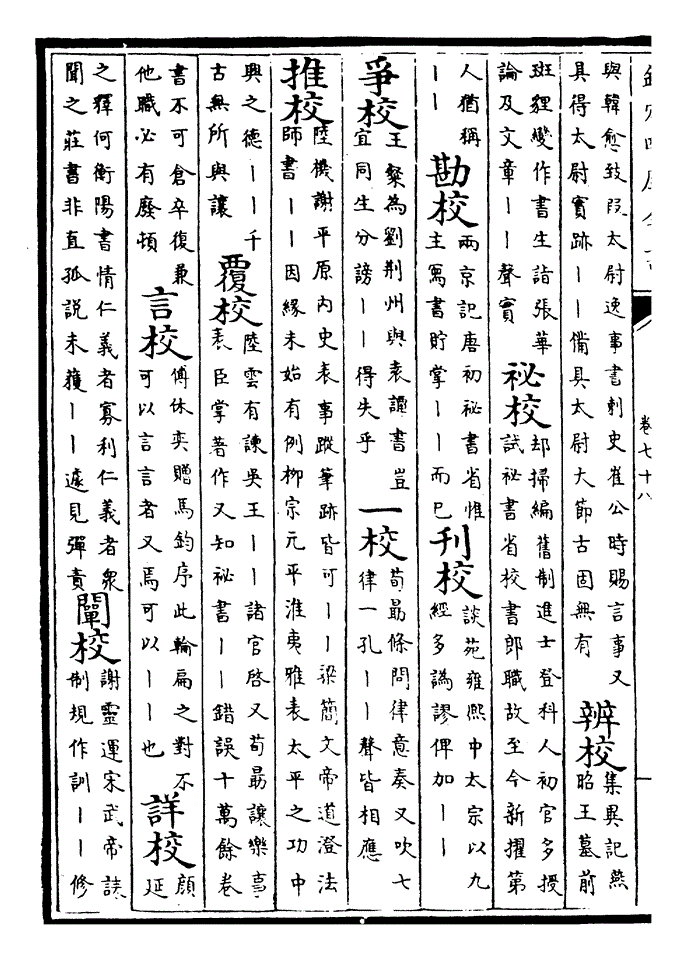 欽定四庫全書
卷七十八
與韓愈致段太尉逸事書刺史崔公時賜言事又
具得太尉實跡||備具太尉大節古固無有
辨校
集異記燕
昭王墓前
班貍變作書生詣張華
論及文章||聲實
祕校
却掃編舊制進士登科人初官多授
試祕書省校書郎職故至今新擢第
人猶稱
||
勘校
兩京記唐初祕書省惟
主寫書貯掌||而已
刊校
談苑雍熙中太宗以九
經多譌謬俾加||
爭校
王粲為劉荆州與袁譚書豈
宜同生分謗||得失乎
一校
荀勗條問律意奏又吹七
律一孔||聲皆相應
推校
陸機謝平原内史表事蹤筆跡皆可||梁簡文帝道澄法
師書||因緣未始有例柳宗元平淮夷雅表太平之功中
興之德||千
古無所與讓
覆校
陸雲有諫吳王||諸官啓又荀勗讓樂事
表臣掌著作又知祕書||錯誤十萬餘卷
書不可倉卒復兼
他職必有廢頓
言校
傅休奕贈馬鈞序此輪扁之對不
可以言言者又焉可以||也
詳校
顏
延
之釋何衡陽書情仁義者寡利仁義者衆
聞之莊書非直孤説未獲||遽見彈責
闡校
謝靈運宋武帝誄
制規作訓||修